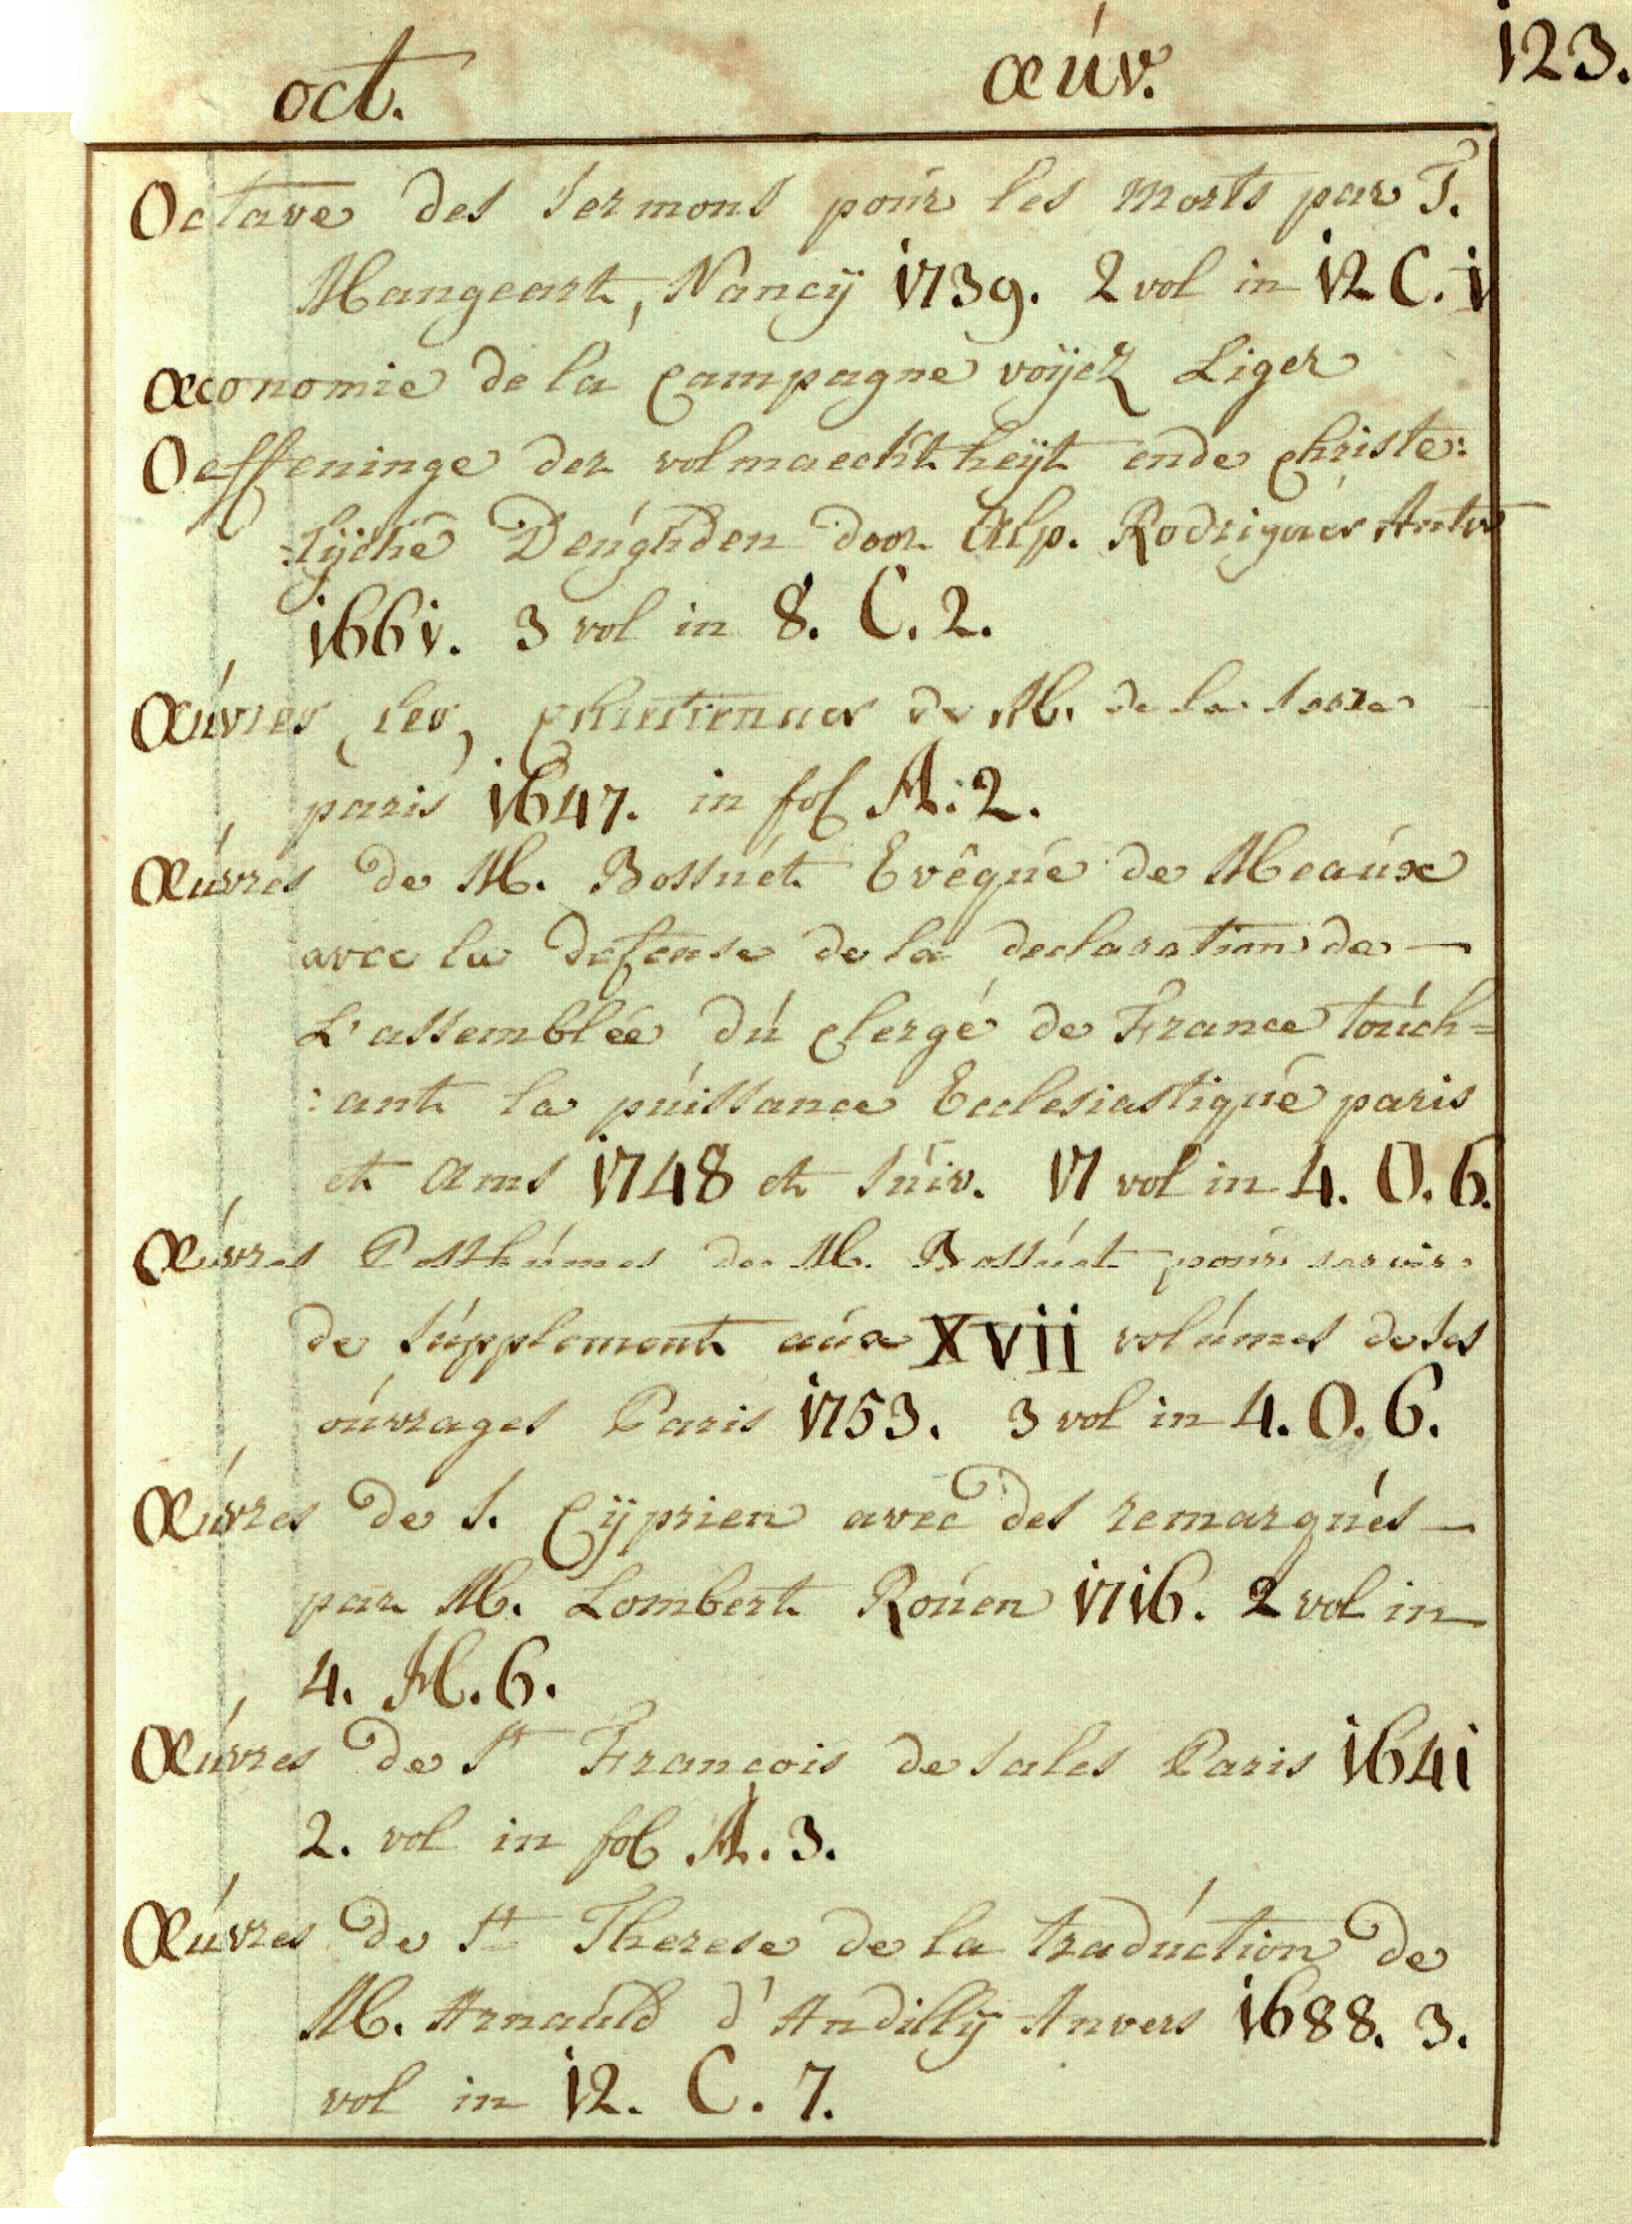 oct. œúv. 123.
Octave des sermons poúr les morts par T.
Mangeart, Nancÿ 1739. 2 vol in 12 C. 1
œconomie de la campagne voÿez Liger
Oeffeninge der volmaeckthheÿt ende christe:
:lÿcke Deúghden door Alp. Rodrigúes Antw
1661. 3 vol in 8. C. 2.
Œúvres (les) chretiennes de M. de la serre
paris 1647. in fol A. 2.
Œúvres de M. Bossúet Evêqúe de Meaúx
avec la defense de la declaration de —
L'assemblée dú clergé de France toúch=
:ant la púissance Ecclesiastiqúe paris
et Ams 1748 et súiv. 17 vol in 4. O. 6.
Œúvres Posthúmes de M. Bossúet poúr servir
de súpplement aúx XVII volúmes de ses
oúvrages Paris 1753. 3 vol in 4. O. 6.
Œúvres de S. Cÿprien avec des remarqúes —
par M. Lombert Roúen 1716. 2 vol in
4. M. 6.
Œúvres de St François de sales Paris 1641
2. vol in fol A. 3.
Œúvres de Ste Therese de la tradúction de
M. Arnaúld d'Andillÿ Anvers 1688. 3.
vol in 12. C. 7.